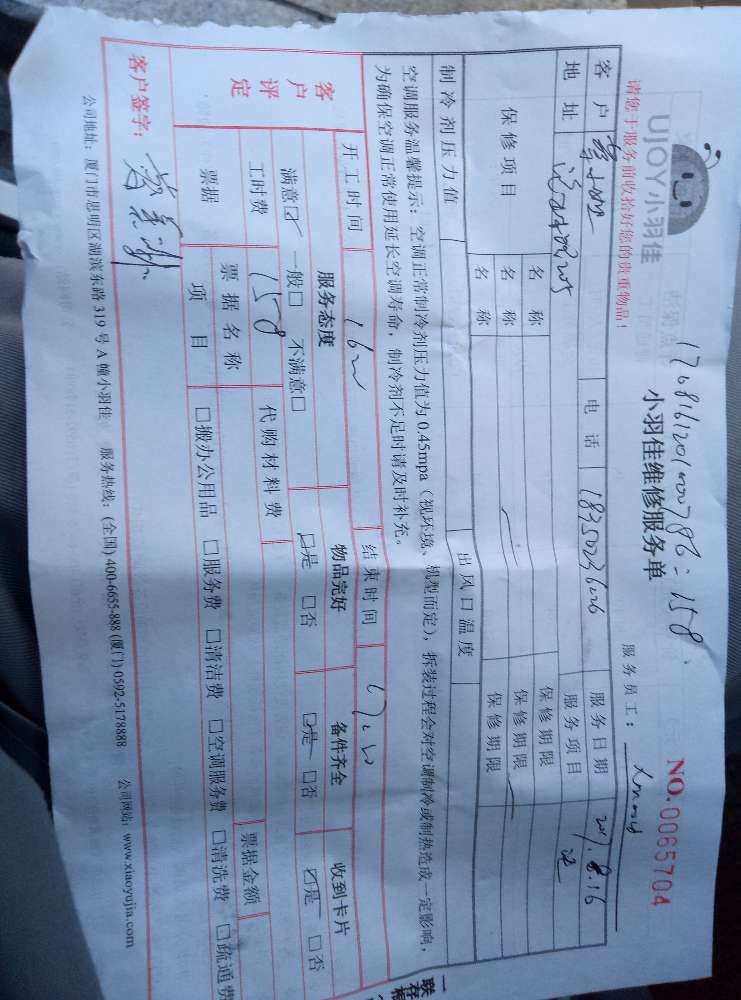 170816120100786: 158.
UJOY小羽佳
小羽佳维修服务单
NO.0065704
请您于服务前收拾好您的贵重物品!
服务员工:
客户
电话 18350236026
服务日期 2017.8.16
地址
服务项目
保修项目
名称
保修期限
名称
保修期限
名称
保修期限
制冷剂压力值
出风口温度
空调服务温馨提示:空调正常制冷剂压力值为0.45mpa(视环境、机型而定),拆装过程会对空调制冷或制热造成一定影响,
为确保空调正常使用延长空调寿命,制冷剂不足时请及时补充。
开工时间
结束时间
客户评定
服务态度
物品完好
备件齐全
收到卡片
满意☑ 一般□ 不满意□
☑是 □否
☑是 □否
☑是 □否
工时费 158
代购材料费
票据
票据名称
票据金额
项目
□搬办公用品 □服务费 □清洁费 □空调服务费 □清洗费 □疏通费
客户签字:
公司地址:厦门市思明区湖滨东路319号A幢小羽佳 服务热线:(全国) 400-6655-888 (厦门) 0592-5178888 公司网站:www.xiaoyujia.com